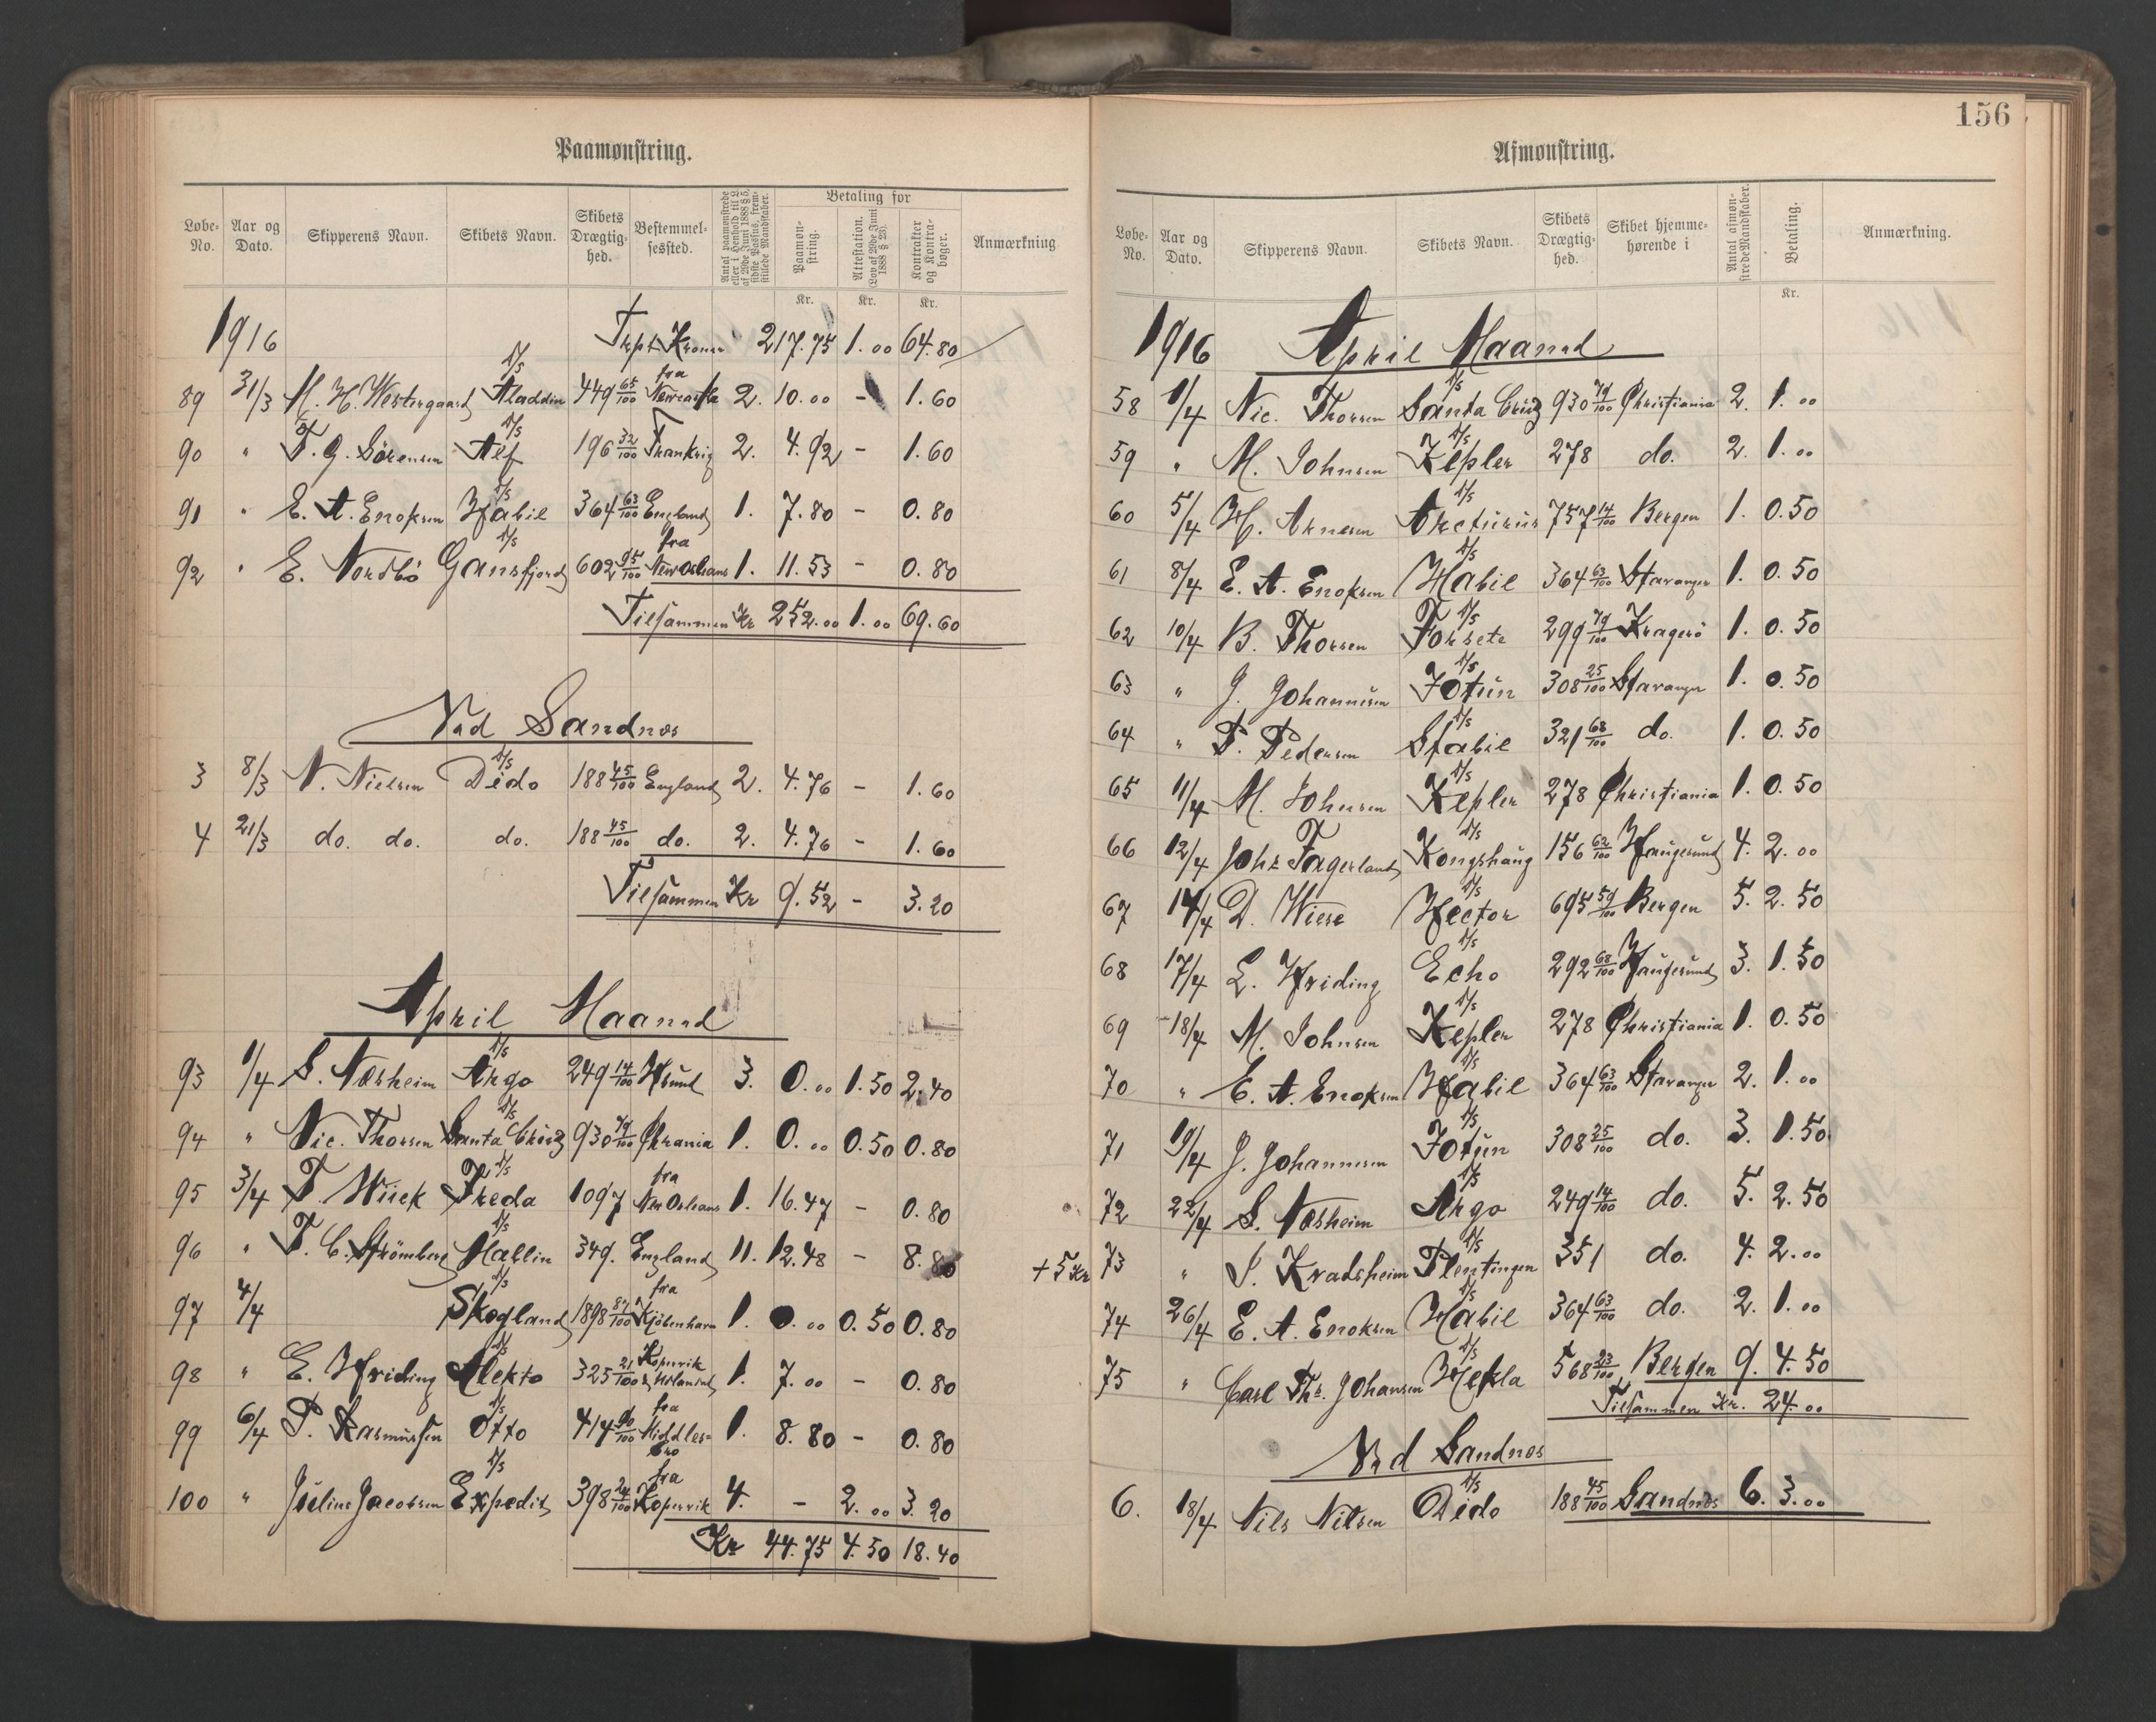 Paamønstring.
Løbe-No. Aar og Dato. Skipperens Navn. Skibets Navn. Skibets Drægtig-hed. Bestemmel-sessted. Antal paamønstrede eller i Henhold til L. af 29de Juni 1888 § 5, sidste Passus, frem-stillede Mandskaber. Betaling for Paamøn-string. Attestation. (Lov af 29de Juni 1888 § 23). Kontrakter og Kontra-bøger. Anmærkning
Kr. Kr. Kr.
1916 Trpt. Kroner 217.75 1.00 64.80
89 31/3 M. H. Westergaard D/S Aladdin 449 65/100 fra Newcastle 2. 10.00 - 1.60
90 " T. G. Sörensen D/S Alf 196 32/100 Frankrig 2. 4.92 - 1.60
91 " E. A. Enoksen D/S Habil 364 63/100 England 1. 7.80 - 0.80
92 " E. Nordbö D/S Gansfjord 602 95/100 fra New Orleans 1. 11.53 - 0.80
Tilsammen Kr 252.00 1.00 69.60
Ved Sandnes
3 8/3 N. Nielsen D/S Dido 188 45/100 England 2. 4.76 - 1.60
4 21/3 do. do. do. 188 45/100 do. 2. 4.76 - 1.60
Tilsammen Kr 9.52 - 3.20
April Maaned
93 1/4 S. Næsheim D/S Argo 249 14/100 Hsund 3. 0.00 1.50 2.40
94 " Nic. Thorsen D/S Santa Cruz 930 79/100 Chrania 1. 0.00 0.50 0.80
95 3/4 T. Wiick D/S Freda 1097 fra New Orleans 1. 16.47 - 0.80
96 " F. C. Strömberg D/S Mallin 349. England 11. 12.48 - 8.80
97 4/4 D/S Skogland 1898 fra Kjöbenhavn 1. 0.00 0.50 0.80
98 " E. Hriding D/S Alekto 325 21/100 Kopervik 1. 7.00 - 0.80
99 6/4 P. Rasmussen D/S Otto 414 90/100 fra Middles-bro 1. 8.80 - 0.80
100 " Julius Jacobsen D/S Expedit 398 24/100 fra Kopervik 4. - 2.00 3.20
Kr 44.75 4.50 18.40
156
Afmønstring.
Løbe-No. Aar og Dato. Skipperens Navn. Skibets Navn. Skibets Drægtig-hed. Skibet hjemme-hørende i Antal afmøn-strede Mandskaber. Betaling. Anmærkning.
Kr.
1916 April Maaned
58 1/4 Nic. Thorsen D/S Santa Cruz 930 79/100 Christiania 2. 1.00
59 " M. Johnsen D/S Kepler 278 do. 2. 1.00
60 5/4 H. Arnesen D/S Arcturus 757 14/100 Bergen 1. 0.50
61 8/4 E. A. Enoksen D/S Habil 364 63/100 Stavanger 1. 0.50
62 10/4 B. Thorsen D/S Forsete 299 79/100 Kragerö 1. 0.50
63 " J. Johannesen D/S Jötun 308 25/100 Stavanger 1. 0.50
64 " P. Pedersen D/S Stabil 321 68/100 do. 1. 0.50
65 11/4 M. Johnsen D/S Kepler 278 Christiania 1. 0.50
66 12/4 Johs Fagerland D/S Kongshaug 156 62/100 Haugesund 4. 2.00
67 14/4 D. Wiese D/S Hector 695 59/100 Bergen 5. 2.50
68 17/4 E. Hriding D/S Echo 292 68/100 Haugesund 3. 1.50
69 18/4 M. Johnsen D/S Kepler 278 Christiania 1. 0.50
70 " E. A. Enoksen D/S Habil 364 63/100 Stavanger 2. 1.00
71 19/4 J. Johannesen D/S Jötun 308 25/100 do. 3. 1.50
72 22/4 S. Næsheim D/S Argo 249 14/100 do. 5. 2.50
+5 Kr 73 " S. Kradsheim D/S Plentingen 351 do. 4. 2.00
74 26/4 E. A. Enoksen D/S Habil 364 63/100 do. 2. 1.00
75 " Carl Thr. Johansen D/S Hekla 568 23/100 Bergen 9. 4.50
Tilsammen Kr. 24.00
Ved Sandnes
6. 18/4 Nils Nilsen D/S Dido 188 45/100 Sandnes 6. 3.00